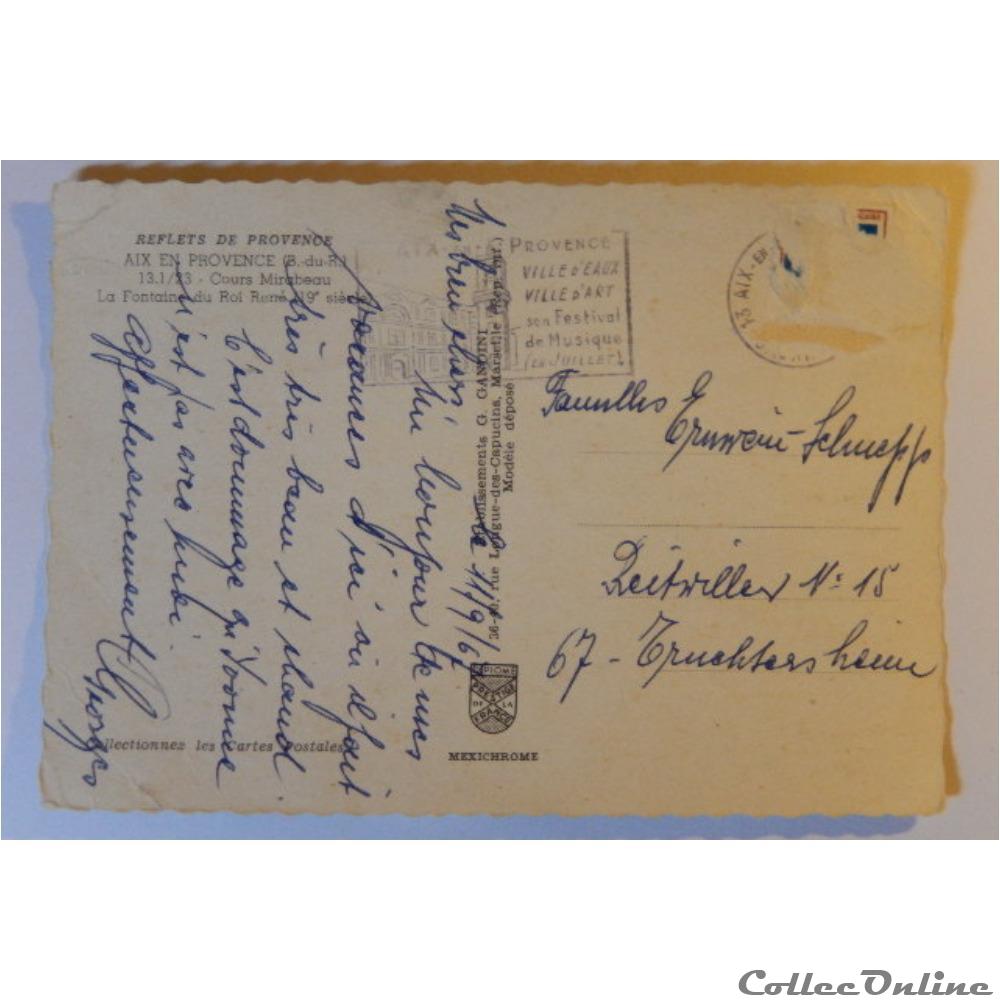 REFLETS DE PROVENCE
AIX EN PROVENCE (B.-du-R.)
13.1/23 - Cours Mirabeau
La Fontaine du Roi René 19e siècle
AIX-EN-
PROVENCE
VILLE D'EAUX
VILLE D'ART
son Festival
de Musique
(EN JUILLET)
13 AIX-EN
le 11/9/67
Mes bien chers
Un bonjour de mes
vacances d'ici où il fait
très très beau et chaud.
C'est dommage qu'Yvonne
n'est pas avec
affectueusement
Georges
Etablissements G. GANDINI
36-40, rue Longue-des-Capucins, Marseille (Rep. int.)
Modèle déposé
PRESTIGE
DE LA
FRANCE
MEXICHROME
llectionnez les Cartes Postales
Familles
Schnepp
Reitwiller No 15
67 - Truchtersheim
CollecOnline